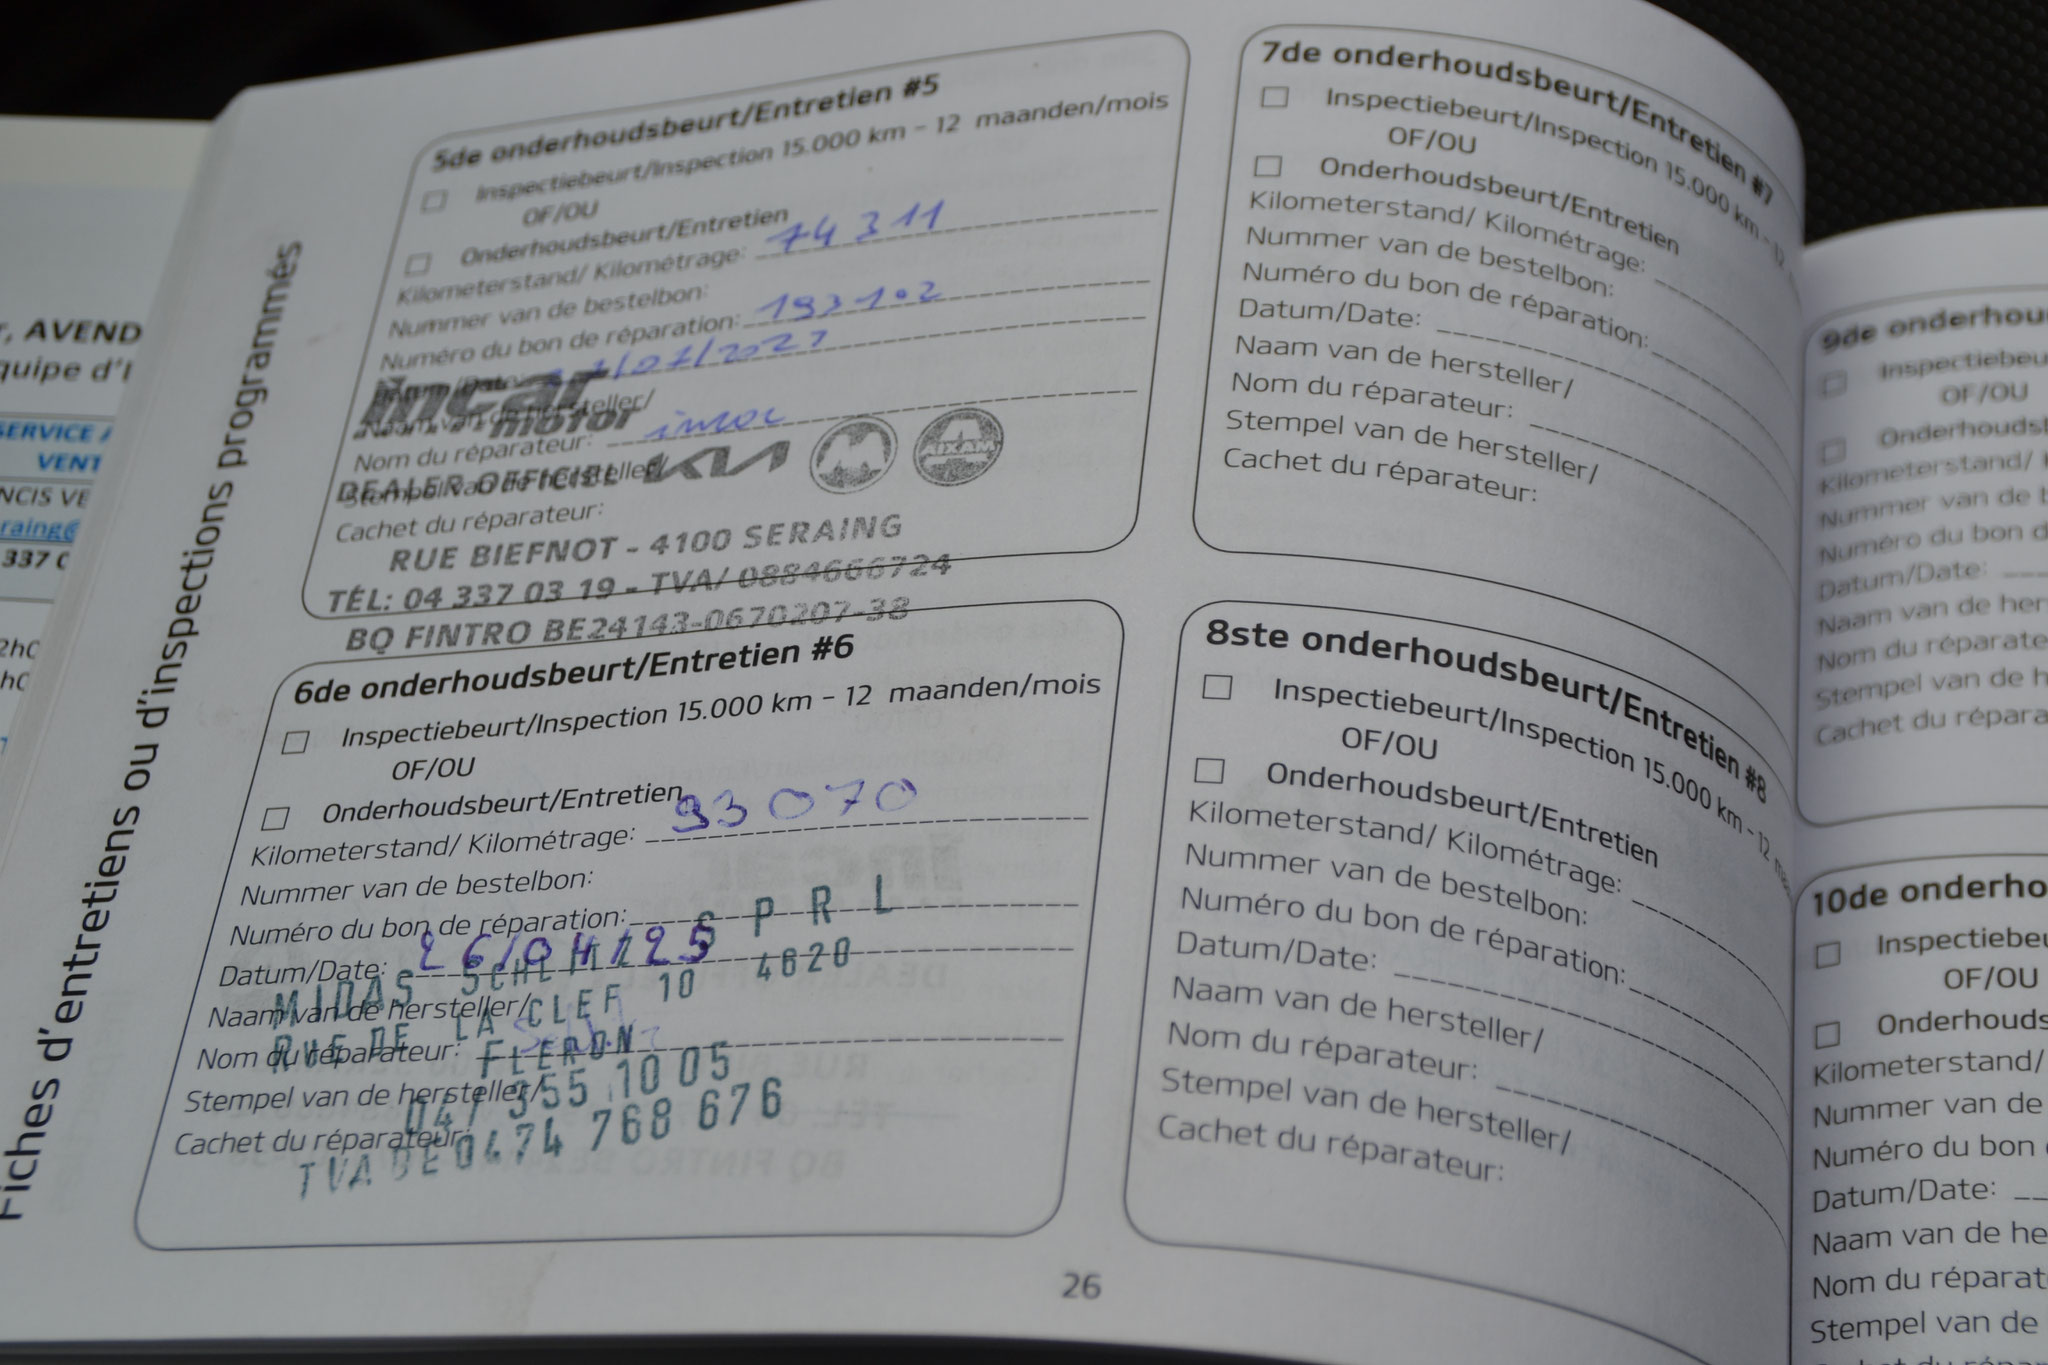 r, AVEND
quipe d'I
SERVICE A
VENT
NCIS VE
raing@
337 0
Fiches d'entretiens ou d'inspections programmés
5de onderhoudsbeurt/Entretien #5
Inspectiebeurt/Inspection 15.000 km - 12 maanden/mois
OF/OU
Onderhoudsbeurt/Entretien
Kilometerstand/ Kilométrage: 74 311
Nummer van de bestelbon:
Numéro du bon de réparation: 193102
Datum/Date: /07/2023
Naam van de hersteller/
Nom du réparateur:
Stempel van de hersteller/
Cachet du réparateur:
incar
motor
DEALER OFFICIEL KIA AIXAM
RUE BIEFNOT - 4100 SERAING
TÉL: 04 337 03 19 - TVA/ 0884666724
BQ FINTRO BE24143-0670207-38
6de onderhoudsbeurt/Entretien #6
Inspectiebeurt/Inspection 15.000 km - 12 maanden/mois
OF/OU
Onderhoudsbeurt/Entretien
Kilometerstand/ Kilométrage: 93070
Nummer van de bestelbon:
Numéro du bon de réparation:
Datum/Date: 26/04/25
Naam van de hersteller/
Nom du réparateur:
Stempel van de hersteller/
Cachet du réparateur:
MIDAS SPRL
RUE DE LA CLEF 10 4620
FLERON
04/ 355 10 05
TVA BE 0474 768 676
7de onderhoudsbeurt/Entretien #7
Inspectiebeurt/Inspection 15.000 km - 12
OF/OU
Onderhoudsbeurt/Entretien
Kilometerstand/ Kilométrage:
Nummer van de bestelbon:
Numéro du bon de réparation:
Datum/Date:
Naam van de hersteller/
Nom du réparateur:
Stempel van de hersteller/
Cachet du réparateur:
8ste onderhoudsbeurt/Entretien #8
Inspectiebeurt/Inspection 15.000 km - 12 m
OF/OU
Onderhoudsbeurt/Entretien
Kilometerstand/ Kilométrage:
Nummer van de bestelbon:
Numéro du bon de réparation:
Datum/Date:
Naam van de hersteller/
Nom du réparateur:
Stempel van de hersteller/
Cachet du réparateur:
26
9de onderhou
Inspectiebeu
OF/OU
Onderhoudsb
Kilometerstand/
Nummer van de b
Numéro du bon d
Datum/Date:
Naam van de her
Nom du réparate
Stempel van de h
Cachet du répara
10de onderho
Inspectiebeu
OF/OU
Onderhouds
Kilometerstand/
Nummer van de
Numéro du bon
Datum/Date:
Naam van de he
Nom du réparat
Stempel van de